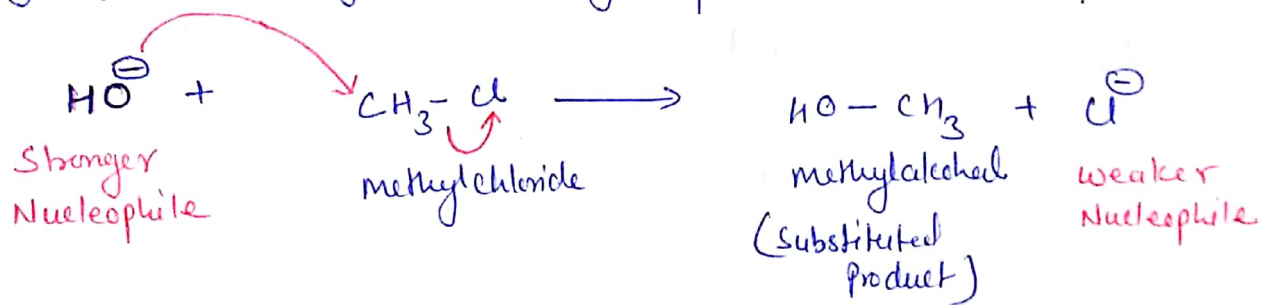 HO⊖ + CH₃–Cl ⟶ HO–CH₃ + Cl⊖
Stronger
Nucleophile
methylchloride
methylalcohol
(substituted
product)
weaker
Nucleophile